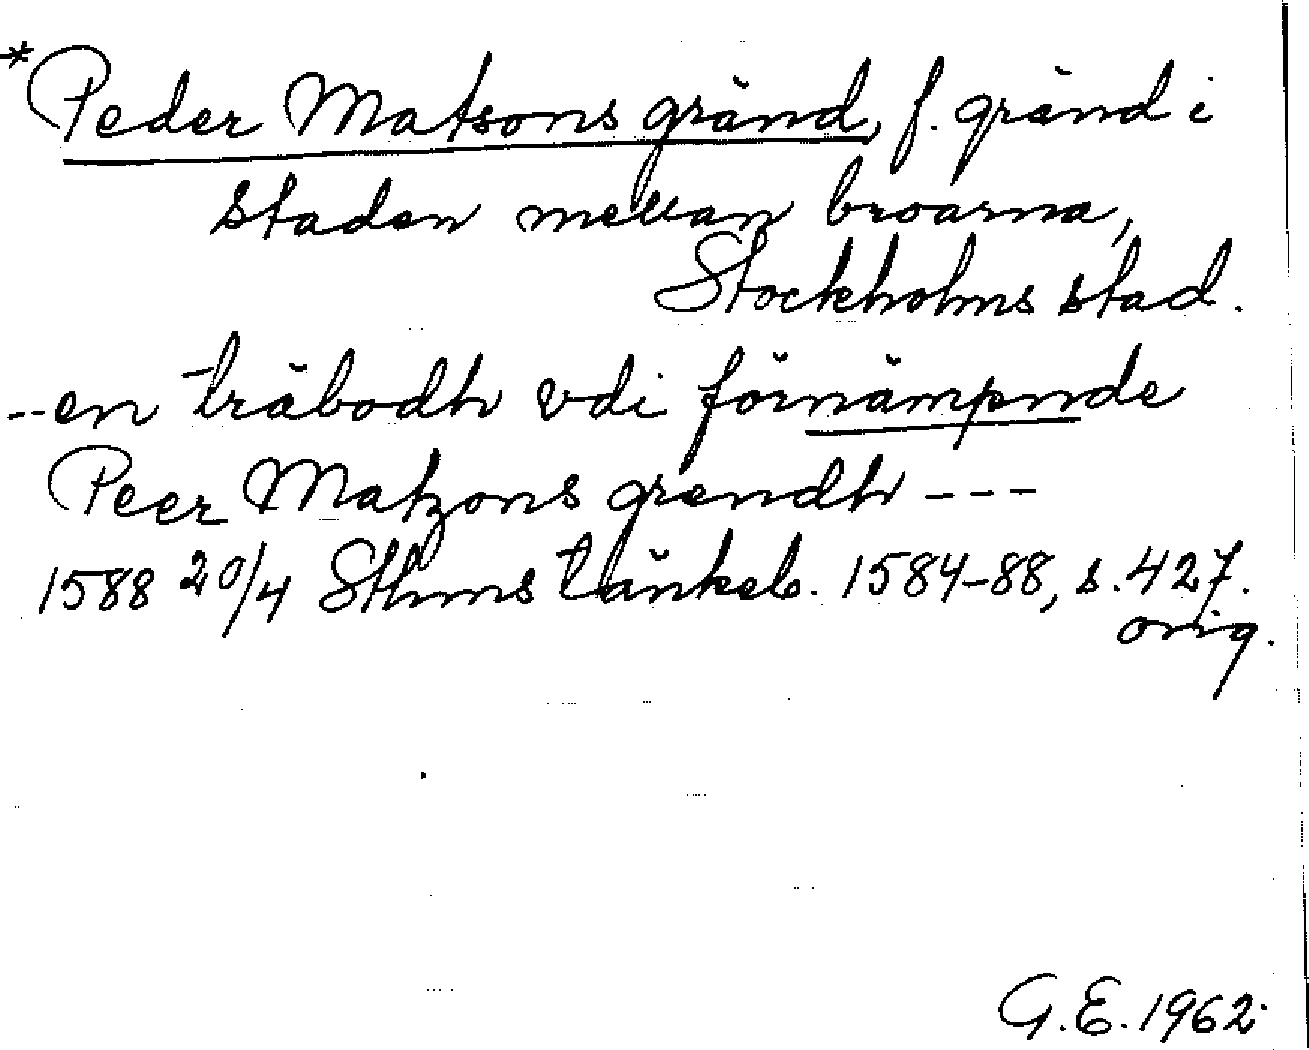 *Peder Matsons gränd, f. gränd i
staden mellan broarna,
Stockholms stad.
--en träbodh vdi förnämpnde
Peer Matzons grendh ---
1588 20/4 Sthms tänkeb. 1584-88, s. 427.
orig.
G.E. 1962.